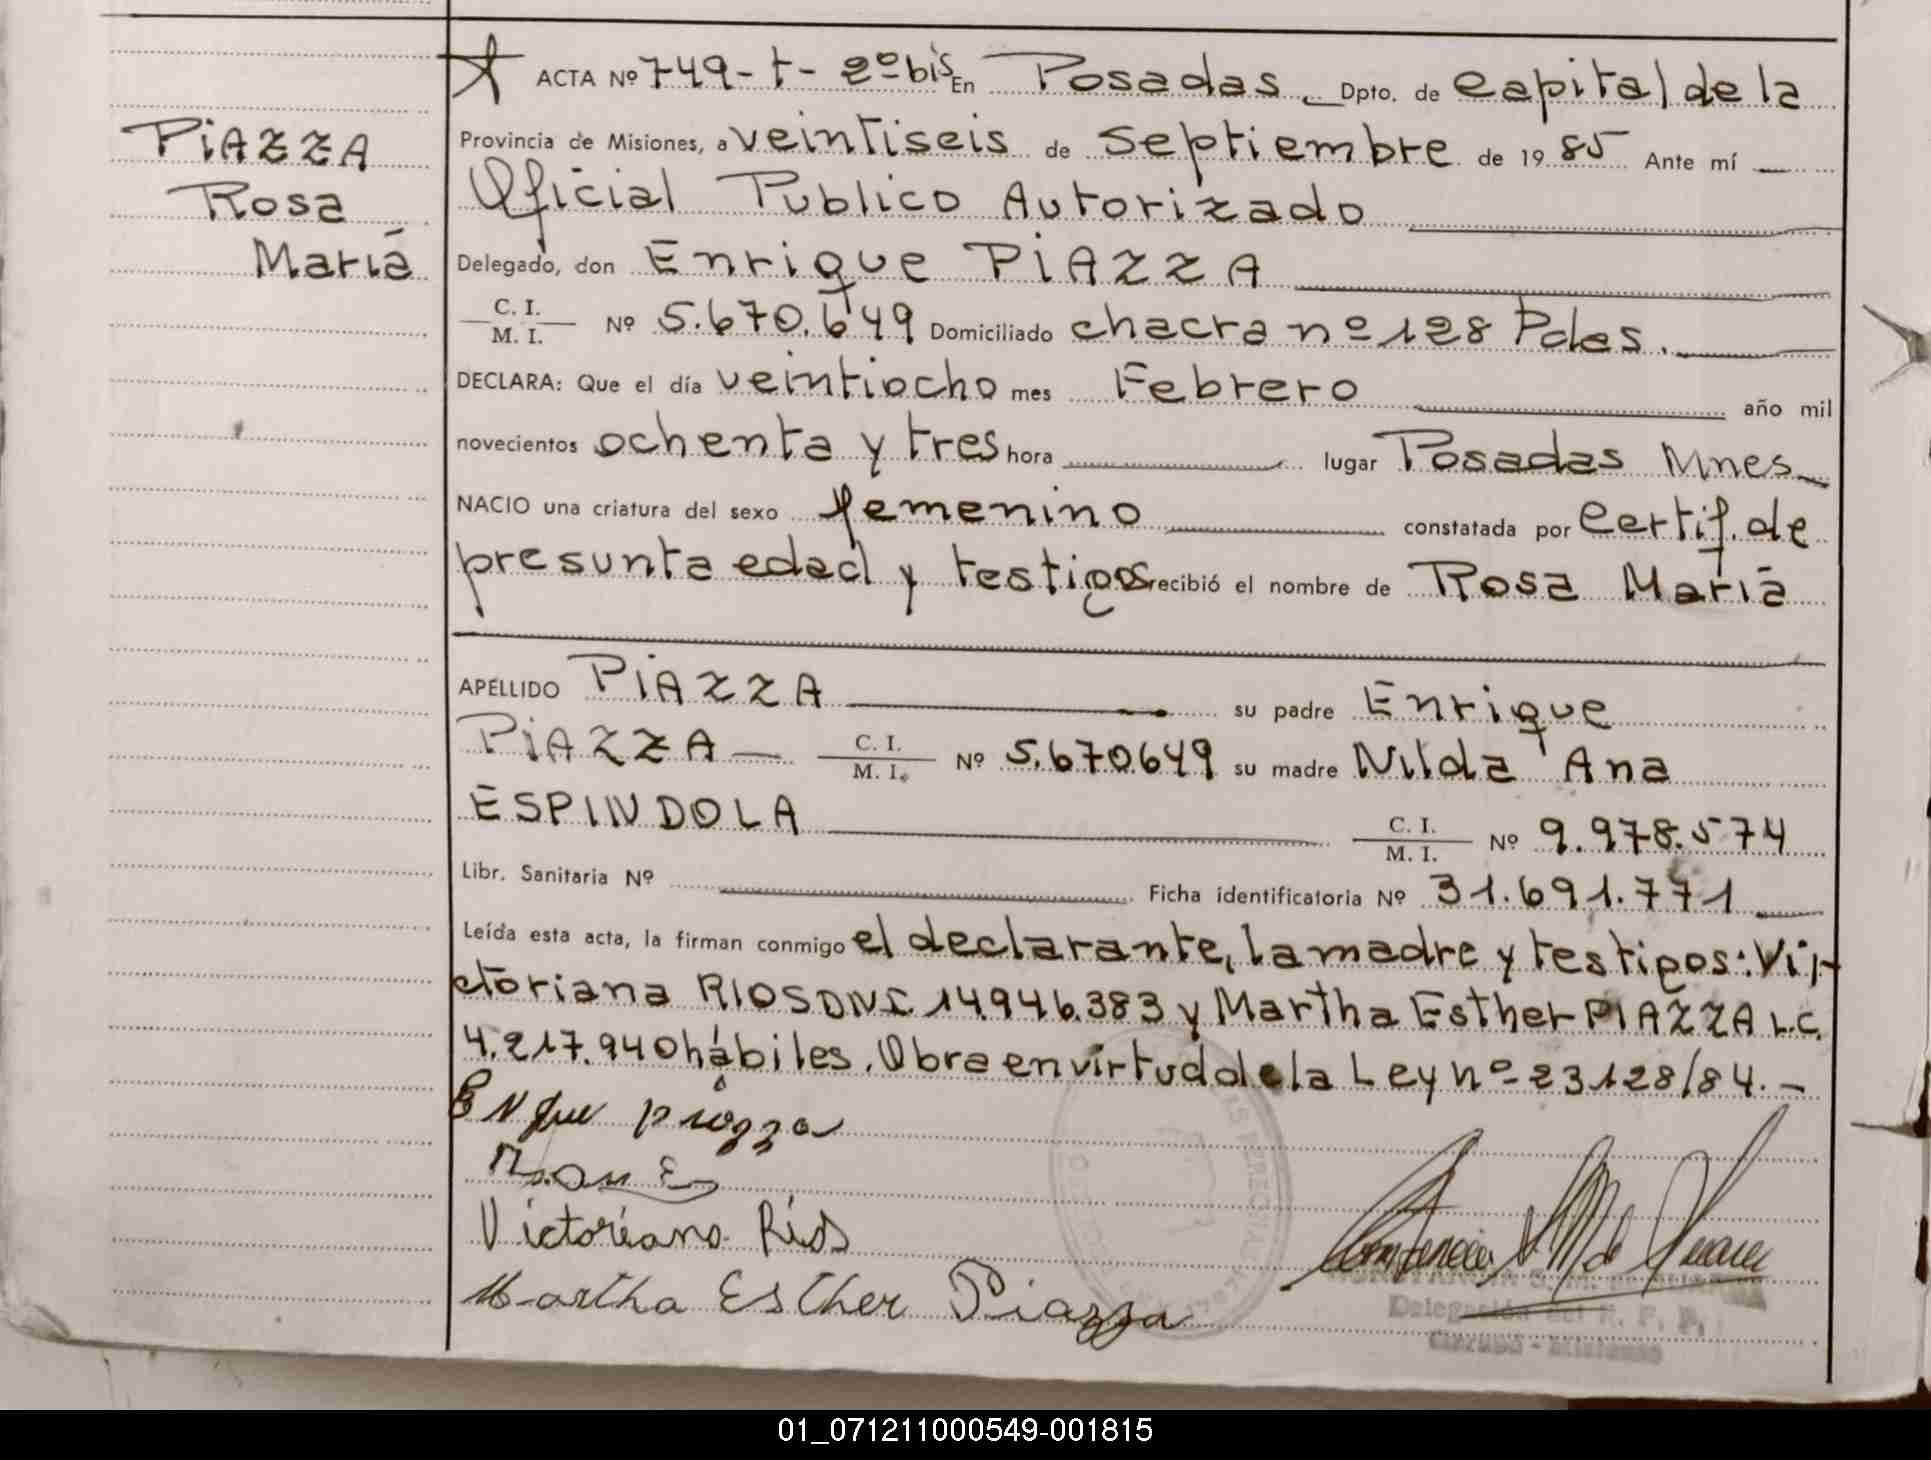 PIAZZA
Rosa
María
ACTA Nº 749-t-2º bis En Posadas Dpto. de Capital de la
Provincia de Misiones, a veintiseis de Septiembre de 1985 Ante mí
Oficial Publico Autorizado
Delegado, don Enrique PIAZZA
C. I.
M. I. Nº 5.670.649 Domiciliado chacra nº 128 Pdas.
DECLARA: Que el día veintiocho mes Febrero año mil
novecientos ochenta y tres hora lugar Posadas Mnes
NACIO una criatura del sexo femenino constatada por Certif. de
presunta edad y testigos recibió el nombre de Rosa María
APELLIDO PIAZZA su padre Enrique
PIAZZA C. I.
M. I. Nº 5.670649 su madre Nilda Ana
ESPINDOLA C. I.
M. I. Nº 9.978.574
Libr. Sanitaria Nº Ficha identificatoria Nº 31.691.771
Leída esta acta, la firman conmigo el declarante, la madre y testigos: Vi-
ctoriana RIOS DNI 14.946.383 y Martha Esther PIAZZA L.C.
4.217.940 hábiles. Obra en virtud de la Ley nº 23128/84.-
piazza
Victoriana Ríos
Martha Esther Piazza
Delegación del R. P. P.
01_071211000549-001815